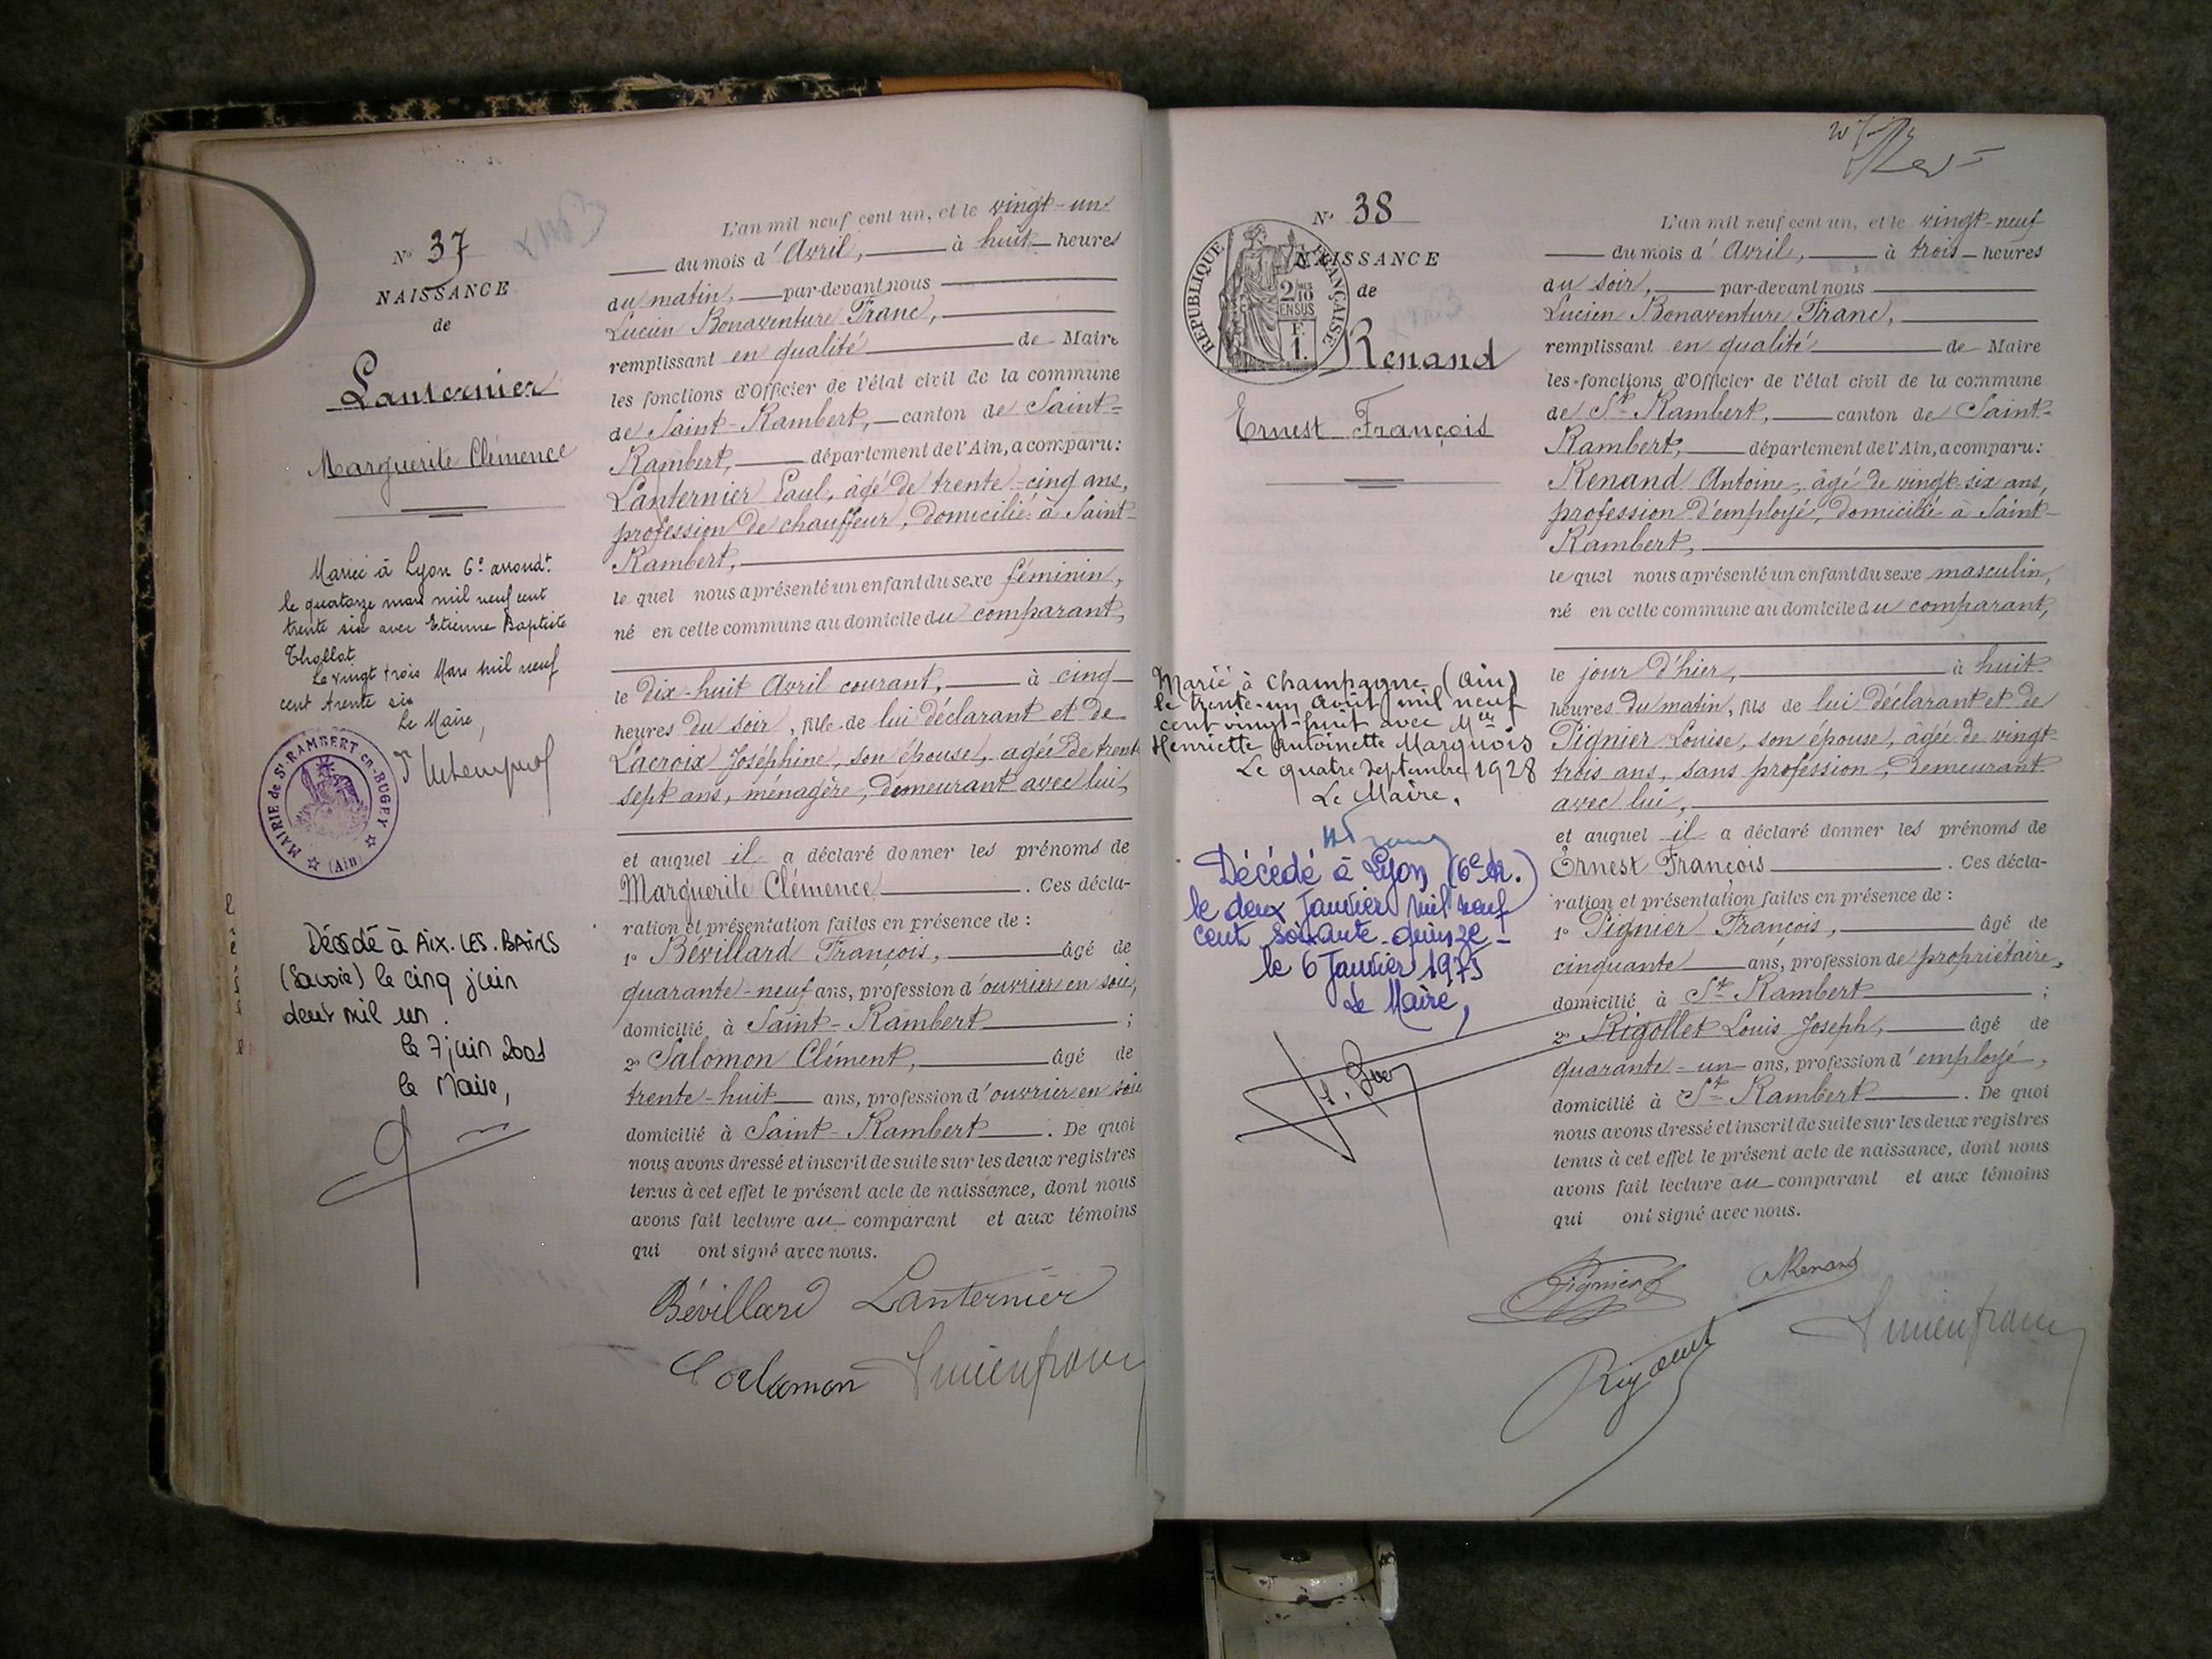 N° 37
NAISSANCE
de
Lanternier
Marguerite Clémence
Mariée à Lyon 6e arrondt.
le quatorze mars mil neuf cent
trente six avec Etienne Baptiste
Thollot
Le vingt trois Mars mil neuf
cent trente six
Le Maire,
MAIRIE de St-RAMBERT en-BUGEY
(Ain)
Décédé à AIX-LES-BAINS
(Savoie) le cinq juin
deux mil un.
le 7 juin 2001
le Maire,
L'an mil neuf cent un, et le vingt-un
du mois d'Avril, à huit heures
du matin, par-devant nous
Lucien Bonaventure Franc,
remplissant en qualité de Maire
les fonctions d'Officier de l'état civil de la commune
de Saint-Rambert, canton de Saint-
Rambert, département de l'Ain, a comparu:
Lanternier Paul, âgé de trente-cinq ans,
profession de chauffeur, domicilié à Saint-
Rambert,
le quel nous a présenté un enfant du sexe féminin,
né en cette commune au domicile du comparant,
le dix-huit Avril courant, à cinq
heures du soir, fille de lui déclarant et de
Lacroix Joséphine, son épouse, agée de trente
sept ans, ménagère, demeurant avec lui,
et auquel il a déclaré donner les prénoms de
Marguerite Clémence. Ces décla-
ration et présentation faites en présence de :
1° Bévillard François, âgé de
quarante-neuf ans, profession d'ouvrier en soie,
domicilié à Saint-Rambert ;
2° Salomon Clément, âgé de
trente-huit ans, profession d'ouvrier en soie
domicilié à Saint-Rambert. De quoi
nous avons dressé et inscrit de suite sur les deux registres
tenus à cet effet le présent acte de naissance, dont nous
avons fait lecture au comparant et aux témoins
qui ont signé avec nous.
Bévillard Lanternier
Salomon Lucien franc
N° 38
NAISSANCE
de
REPUBLIQUE FRANÇAISE
2/10
EN SUS
F.
1.
Renand
Ernest François
Marié à Champagne (Ain)
le trente-un Août mil neuf
cent vingt-huit avec Melle
Henriette Antoinette Marquois
Le quatre Septembre 1928
Le Maire.
Décédé à Lyon (6e Ar.)
le deux Janvier mil neuf
cent soixante-quinze -
le 6 Janvier 1975
Le Maire,
L'an mil neuf cent un, et le vingt-neuf
du mois d'Avril, à trois heures
du soir, par-devant nous
Lucien Bonaventure Franc,
remplissant en qualité de Maire
les fonctions d'Officier de l'état civil de la commune
de St Rambert, canton de Saint-
Rambert, département de l'Ain, a comparu:
Renand Antoine, âgé de vingt-six ans,
profession d'employé, domicilié à Saint-
Rambert,
le quel nous a présenté un enfant du sexe masculin,
né en cette commune au domicile du comparant,
le jour d'hier, à huit
heures du matin, fils de lui déclarant et de
Pignier Louise, son épouse, âgée de vingt-
trois ans, sans profession, demeurant
avec lui,
et auquel il a déclaré donner les prénoms de
Ernest François. Ces décla-
ration et présentation faites en présence de :
1° Pignier François, âgé de
cinquante ans, profession de propriétaire,
domicilié à St Rambert ;
2° Rigollet Louis Joseph, âgé de
quarante-un ans, profession d'employé,
domicilié à St Rambert. De quoi
nous avons dressé et inscrit de suite sur les deux registres
tenus à cet effet le présent acte de naissance, dont nous
avons fait lecture au comparant et aux témoins
qui ont signé avec nous.
Pignier A Renand
Lucien franc